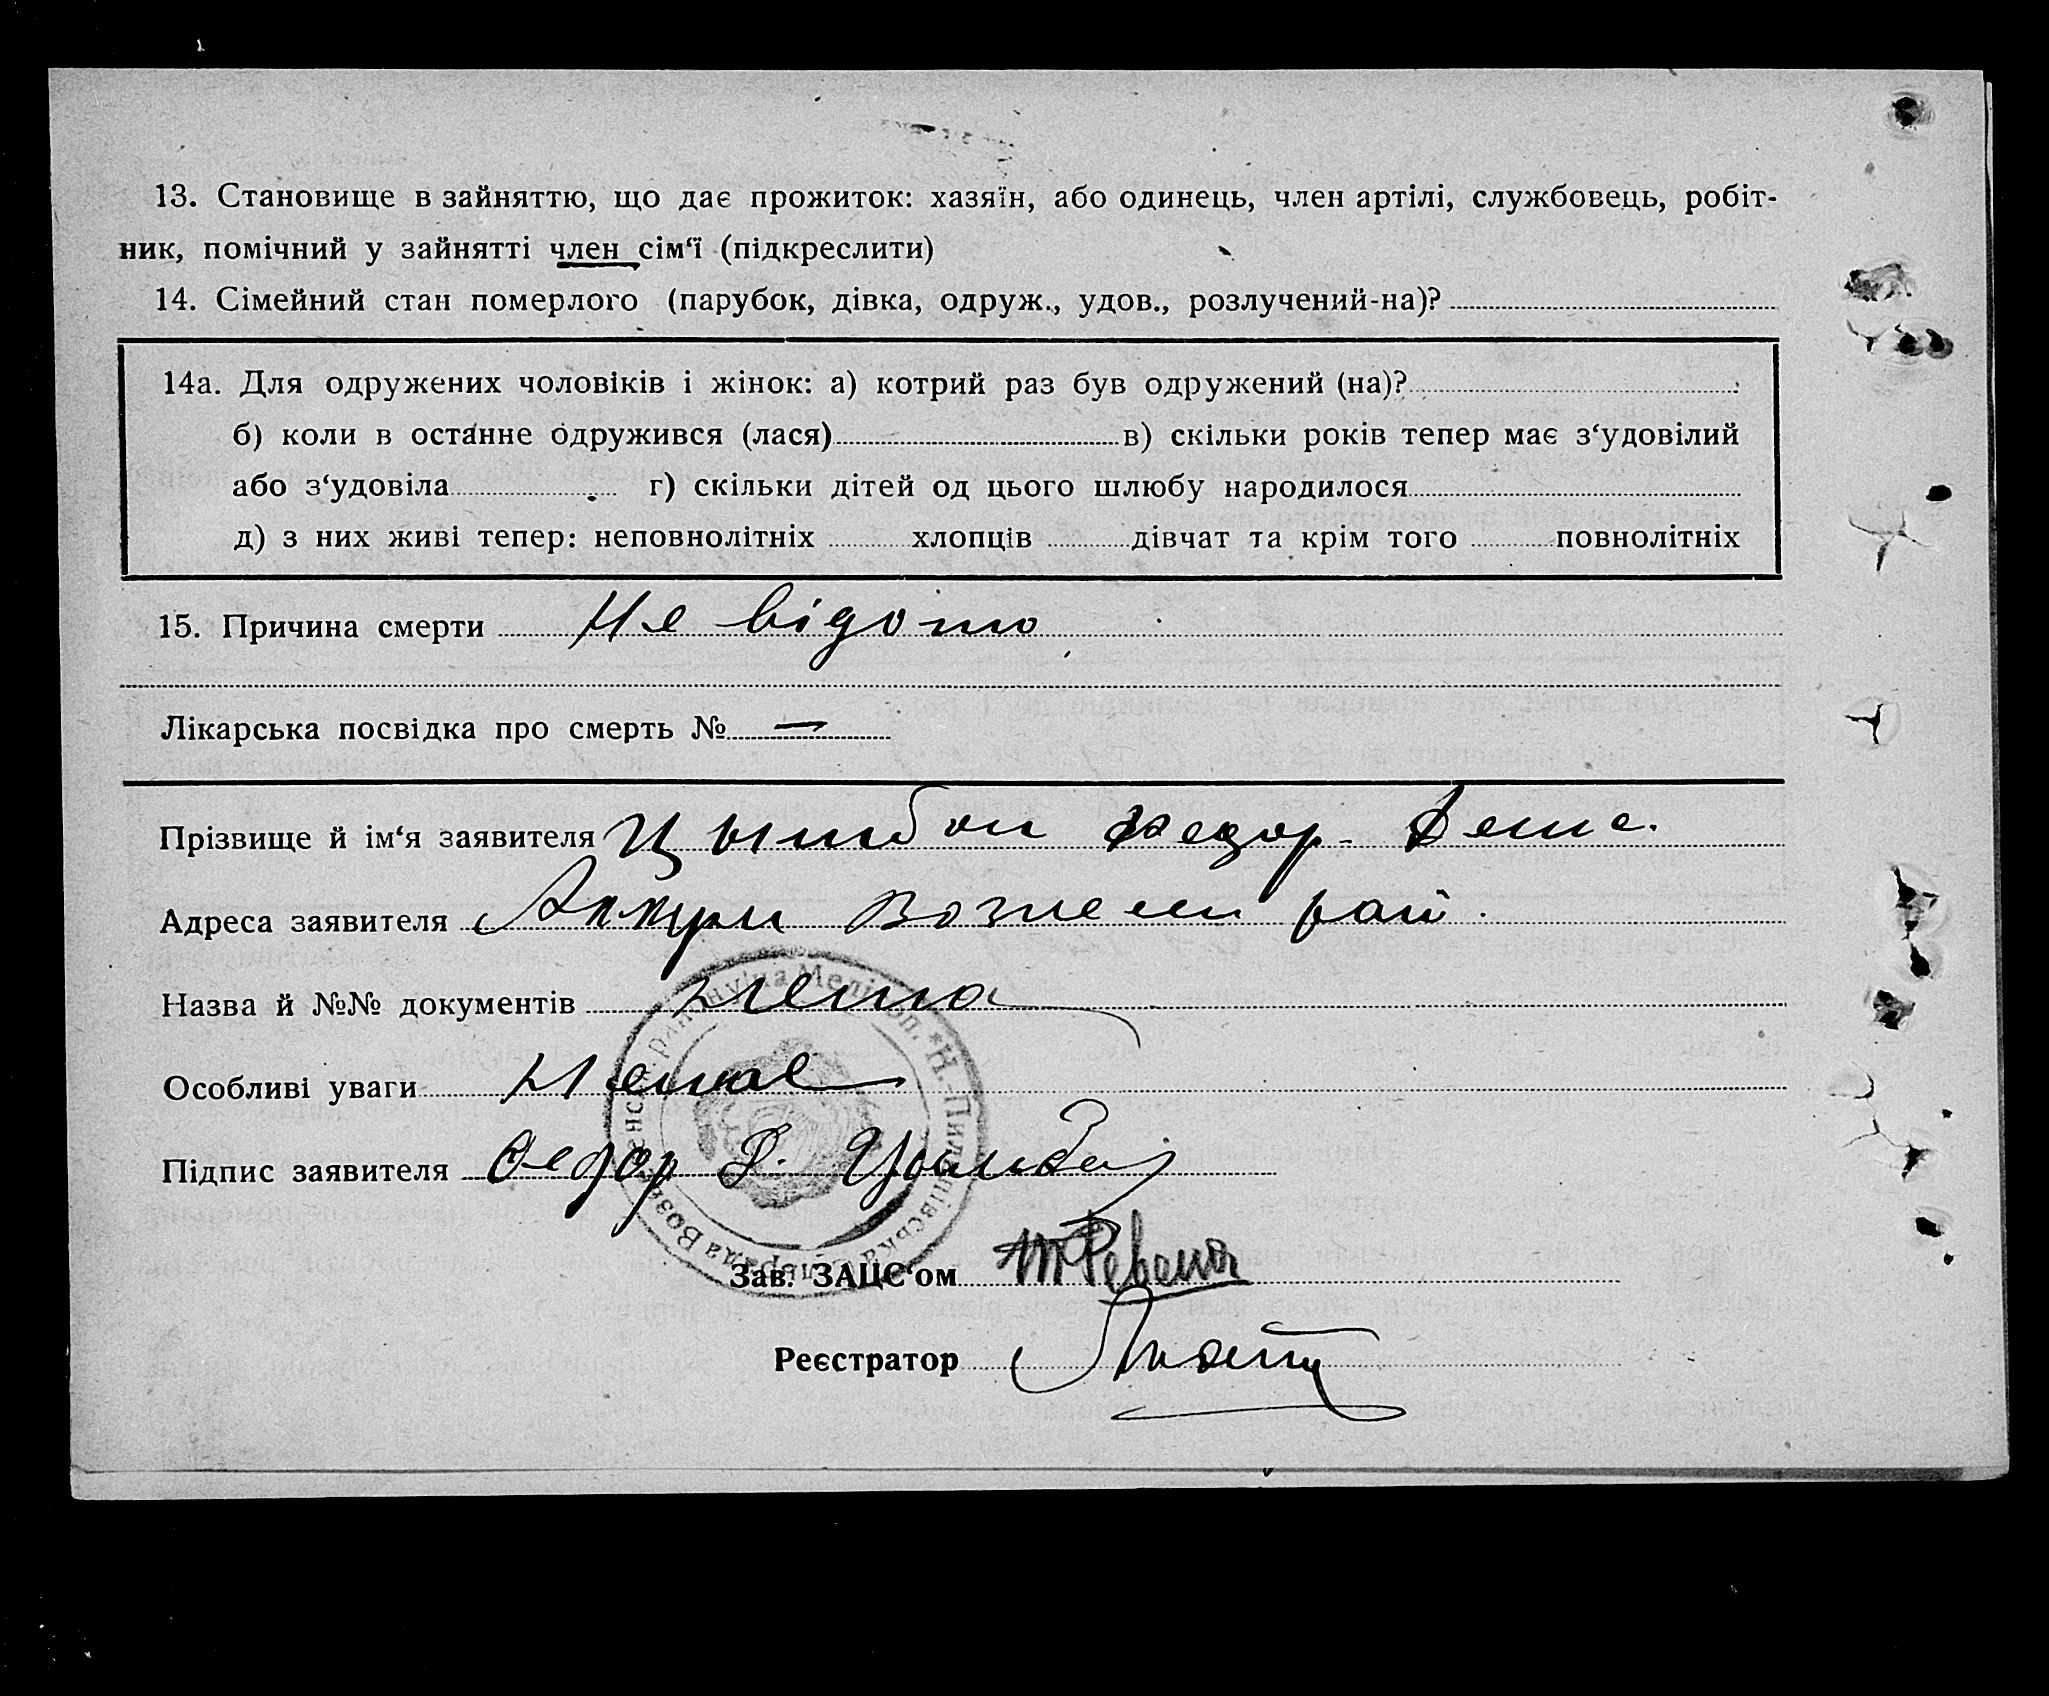 13. Становище в зайняттю, що дає прожиток: хазяїн, або одинець, член артілі, службовець, робіт-
ник, помічний у зайнятті член сім‘ї (підкреслити)
14. Сімейний стан померлого (парубок, дівка, одруж., удов., розлучений-на)?
14а. Для одружених чоловіків і жінок: а) котрий раз був одружений (на)?
б) коли в останнє одружився (лася) в) скільки років тепер має з‘удовілий
або з‘удовіла г) скільки дітей од цього шлюбу народилося
д) з них живі тепер: неповнолітніх хлопців дівчат та крім того повнолітніх
15. Причина смерти Не відомо
Лікарська посвідка про смерть № —
Прізвище й ім‘я заявителя Цымбал Федор
Адреса заявителя рай.
Назва й №№ документів нема
Особливі уваги немає
Підпис заявителя Федор Цымбал
Зав. ЗАЦС‘ом
Реєстратор